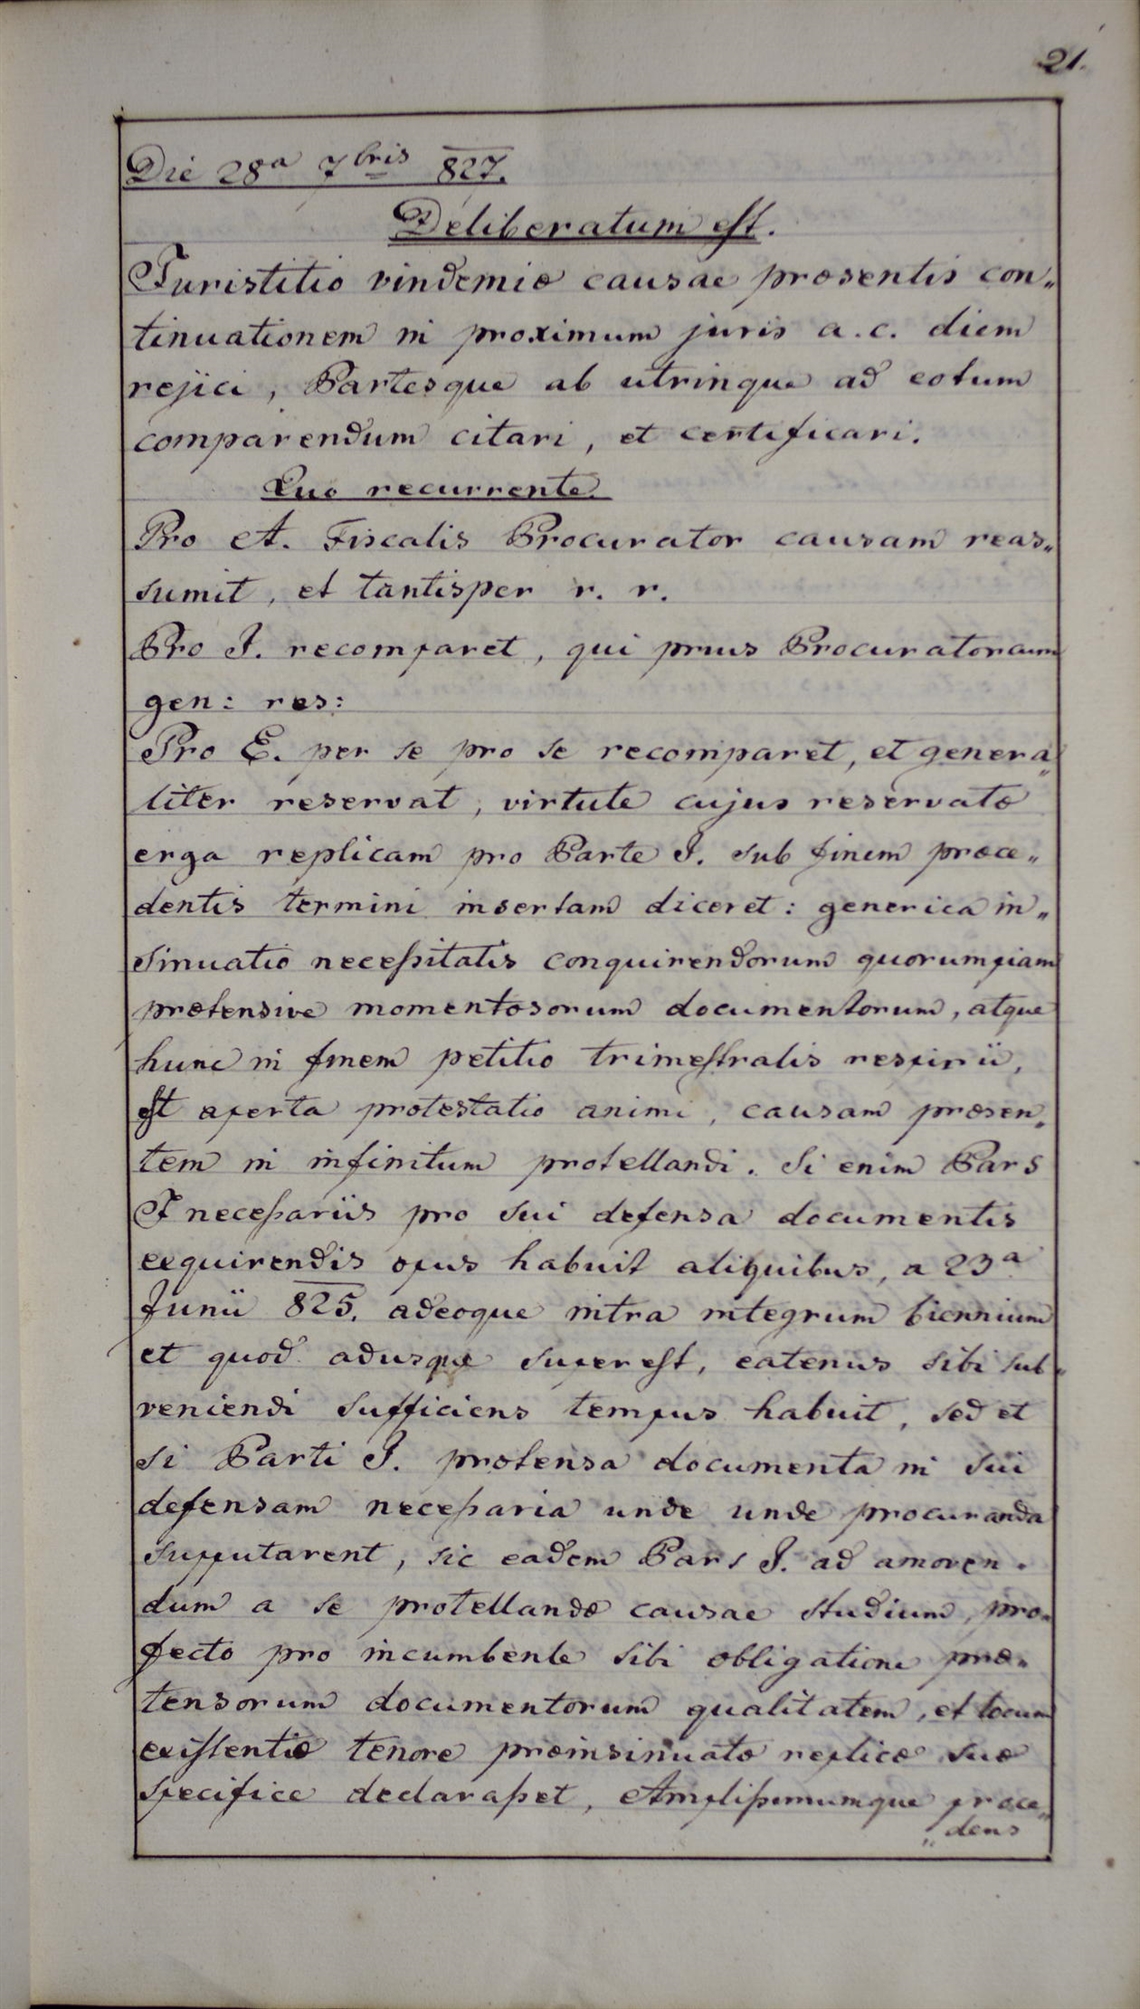 21.
Die 28a 7bris 827.
Deliberatum est.
Juristitio vindemiæ causae præsentis con„
tinuationem in proximum juris a. c. diem
rejici, Partesque ab utrinque ad eotum
comparendum citari, et certificari.
Quo recurrente
Pro A. Fiscalis Procurator causam reas„
sumit, et tantisper r. r.
Pro J. recomparet, qui prius Procuratorum
gen: res:
Pro E. per se pro se recomparet, et genera„
liter reservat, virtute cujus reservatæ
erga replicam pro Parte J. sub finem præce„
dentis termini insertam diceret: generica in„
sinuatio necessitatis conquirendorum quorumpiam
prætensive momentosorum documentorum, atque
hunc in finem petitio trimestralis respirii,
est aperta protestatio animi, causam præsen„
tem in infinitum protellandi. Si enim Pars
J necessariis pro sui defensa documentis
exquirendis opus habuit aliquibus, a 23a
Junii 825. adeoque intra integrum biennium
et quod adusque superest, eatenus sibi sub„
veniendi sufficiens tempus habuit, sed et
si Parti J. prætensa documenta in sui
defensam necessaria unde unde procuranda
supputarent, sic eadem Pars J. ad amoven„
dum a se protellandæ causae studium, pro„
fecto pro incumbente sibi obligatione præ„
tensorum documentorum qualitatem, et locum
existentiæ tenore præinsinuatæ replicæ suæ
specifice declarasset, Amplissimumque præce„
„dens